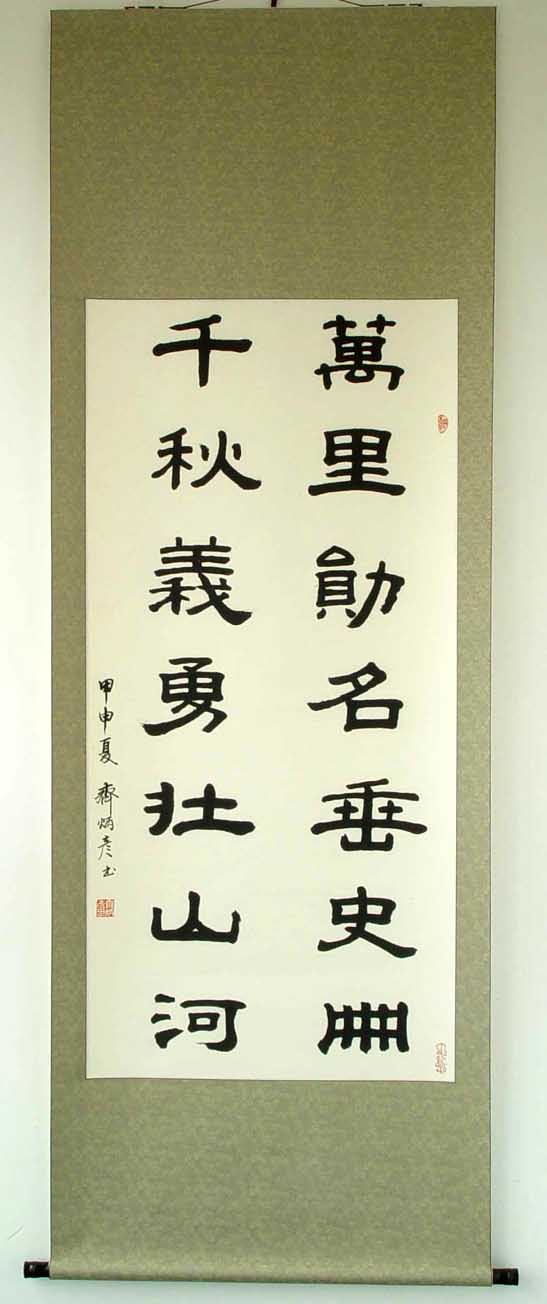 萬里勛名垂史冊
千秋義勇壯山河
甲申夏 齊炳彦书